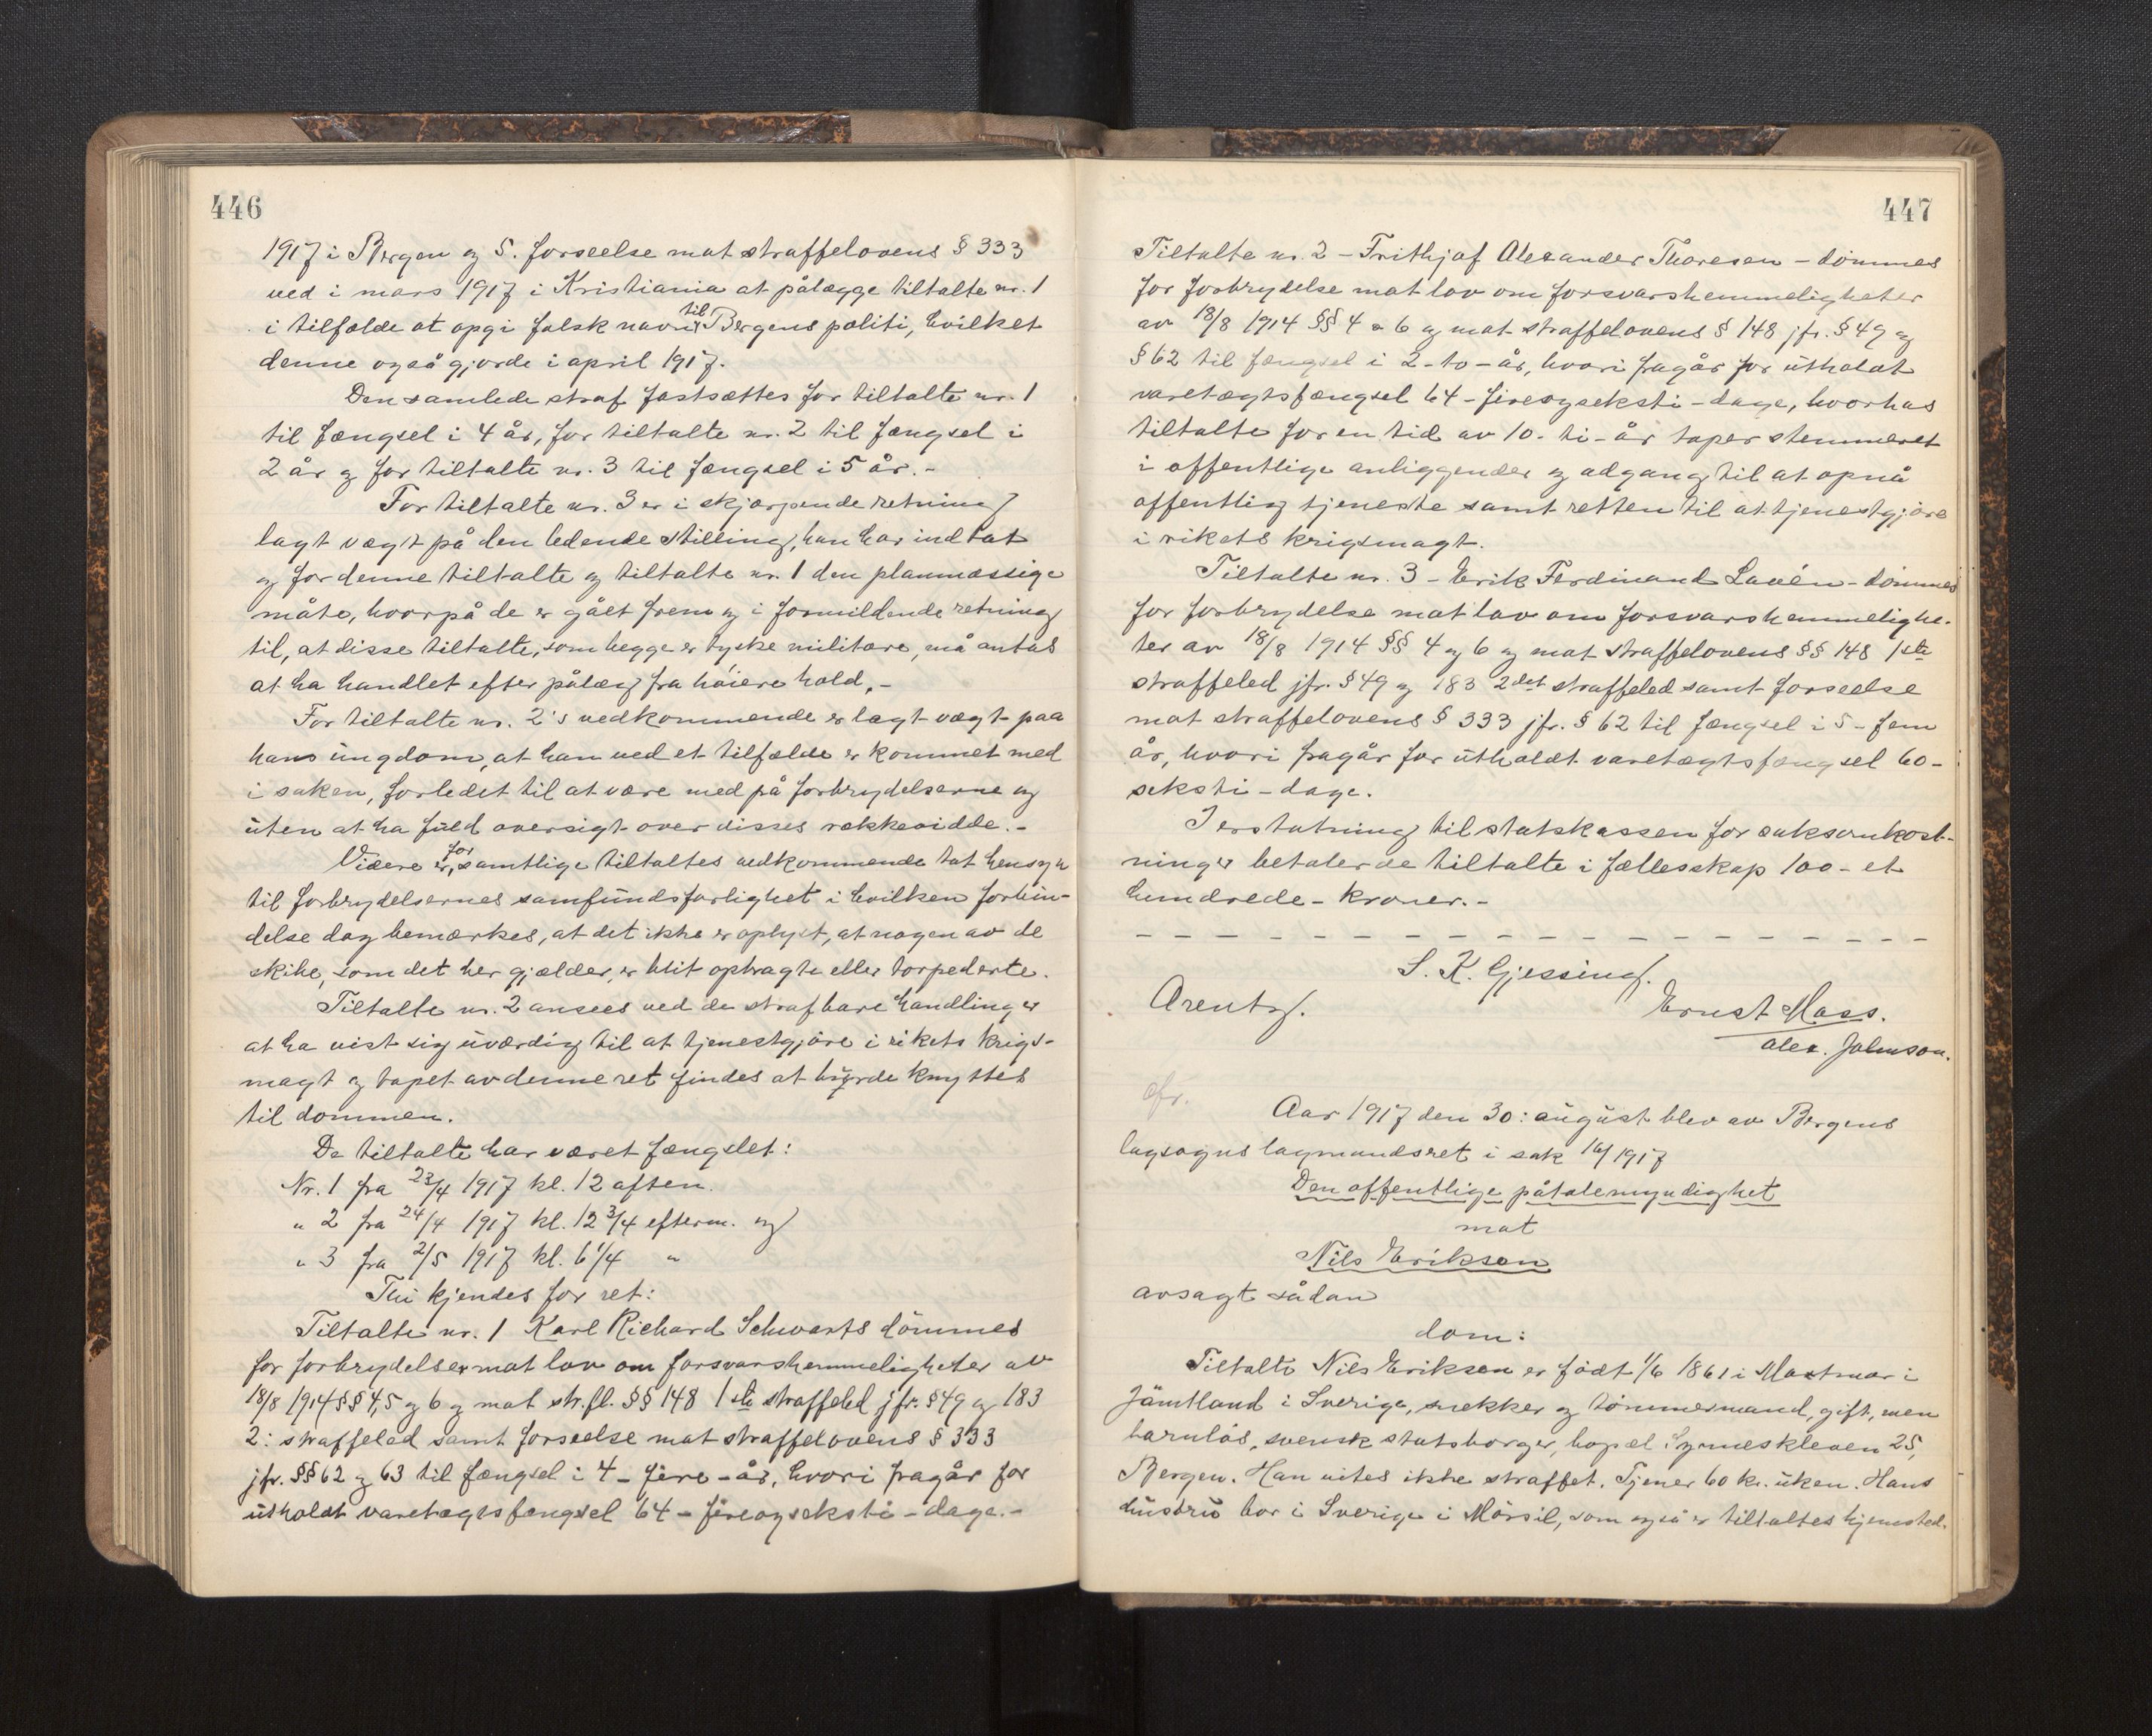 446
1917 i Bergen og 5. forseelse mot straffelovens § 333
ved i mars 1917 i Kristiania at pålægge tiltalte nr. 1
i tilfælde at opgi falsk navn til Bergens politi, hvilket
denne også gjorde i april 1917.
Den samlede straf fastsættes for tiltalte nr. 1
til fængsel i 4 år, for tiltalte nr. 2 til fængsel i
2 år og for tiltalte nr. 3 til fængsel i 5 år.-
For tiltalte nr. 3 er i skjærpende retning
lagt vægt på den ledende stilling, han har indtat
og for denne tiltalte og tiltalte nr. 1 den planmæssige
måte, hvorpå de er gået frem og i formildende retning
til, at disse tiltalte, som begge er tyske militære, må antas
at ha handlet efter pålæg fra høiere hold.-
For tiltalte nr. 2's vedkommende er lagt vægt paa
hans ungdom, at han ved et tilfælde er kommet med
i saken, forledet til at være med på forbrydelserne og
uten at ha fuld oversigt over disses rækkevidde.-
Videre er for samtlige tiltaltes vedkommende tat hensyn
til forbrydelsernes samfundsfarlighet i hvilken forbin-
delse dog bemærkes, at det ikke er oplyst, at nogen av de
skibe, som det her gjælder, er blit opbragte eller torpederte.
Tiltalte nr. 2 ansees ved de strafbare handlinger
at ha vist sig uværdig til at tjenestgjøre i rikets krigs-
magt og tapet av denne ret findes at burde knyttes
til dommen.
De tiltalte har været fængslet:
Nr. 1 fra 23/4 1917 kl. 12 aften.
" 2 fra 24/4 1917 kl. 12 3/4 efterm. og
" 3 fra 2/5 1917 kl. 6 1/4 "
Thi kjendes for ret:
Tiltalte nr. 1 Karl Richard Schwarts dømmes
for forbrydelser mot lov om forsvarshemmeligheter av
18/8 1914 §§ 4,5 og 6 og mot str.fl. §§ 148 1ste straffeled jfr. § 49 og 183
2: straffeled samt forseelse mot straffelovens § 333
jfr. §§ 62 og 63 til fængsel i 4 - fire - år, hvori fragår for
utholdt varetægtsfængsel 64 - fireogseksti - dage.-
447
Tiltalte nr. 2 - Frithjof Alexander Thoresen - dømmes
for forbrydelse mot lov om forsvarshemmeligheter
av 18/8 1914 §§ 4 og 6 og mot straffelovens § 148 jfr. § 49 og
§ 62 til fængsel i 2 - to - år, hvori fragår for utholdt
varetægtsfængsel 64 - fireogseksti - dage, hvorhos
tiltalte for en tid av 10 - ti - år taper stemmeret
i offentlige anliggender og adgang til at opnå
offentlig tjeneste samt retten til at tjenestgjøre
i rikets krigsmagt.
Tiltalte nr. 3 - Erik Ferdinand Lavén - dømmes
for forbrydelse mot lov om forsvarshemmelighe-
ter av 18/8 1914 §§ 4 og 6 og mot straffelovens §§ 148 1ste
straffeled jfr. § 49 og 183 2det straffeled samt forseelse
mot straffelovens § 333 jfr. § 62 til fængsel i 5 - fem
år, hvori fragår for utholdt varetægtsfængsel 60 -
seksti - dage.
I erstatning til statskassen for saksomkost-
ninger betaler de tiltalte i fællesskap 100 - et
hundrede - kroner.-
S. K. Gjessing.
Arentz.
Ernst Mass.
Alex. Johnson.
cfr.
Aar 1917 den 30: august blev av Bergens
lagsogns lagmandsret i sak 16/1917
Den offentlige påtalemyndighet
mot
Nils Erikson
avsagt sådan
dom:
Tiltalte Nils Erikson er født 1/6 1861 i i
Jämtland i Sverige, snekker og tømmermand, gift, men
barnløs, svensk statsborger, bopæl 25,
Bergen. Han vites ikke straffet. Tjener 60 kr. uken. Hans
hustru bor i Sverige i Mörsil, som også er tiltaltes hjemsted.